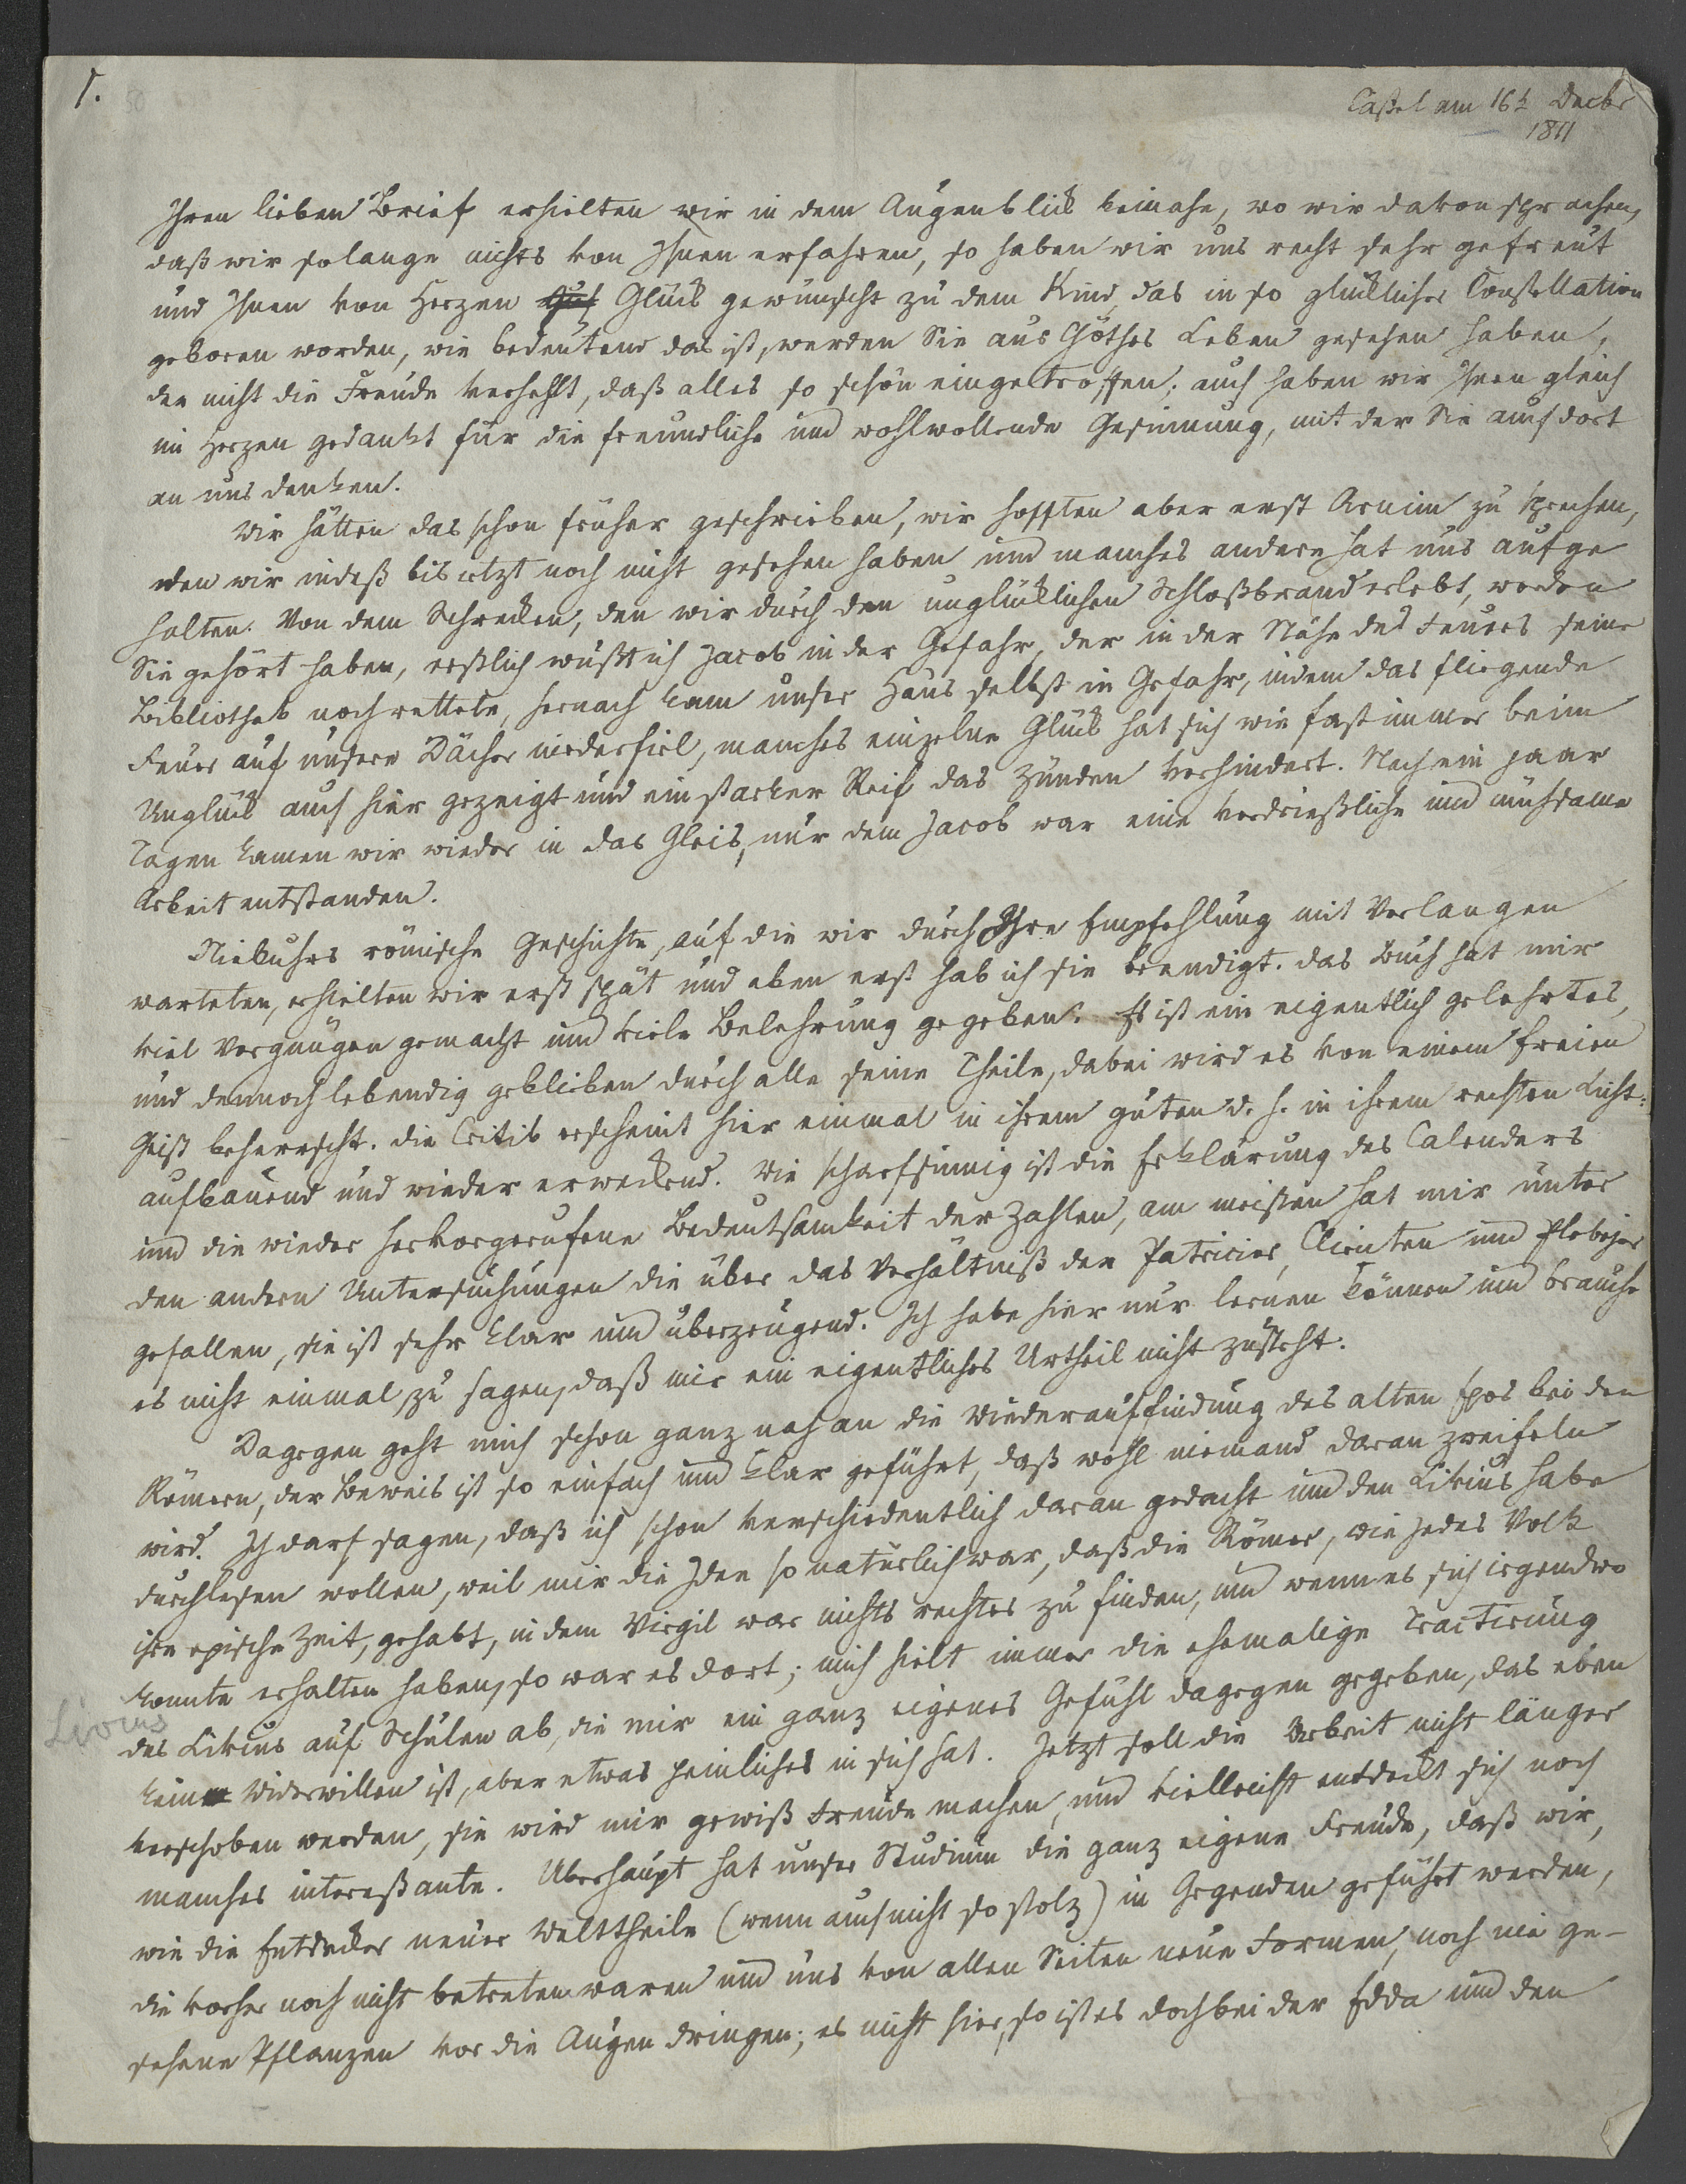 1.
Caßel am 16t Decbr
1811
Ihren lieben Brief erhielten wir in dem Augenblick beinahe, wo wir davon sprachen,
daß wir solange nichts von Ihnen erfahren, so haben wir uns recht sehr gefreut
und Ihnen von Herzen Glück gewünscht zu dem Kind, das in so glücklicher Constellation
geboren worden, wie bedeutend das ist, werden Sie aus Göthes Leben gesehen haben,
der nicht die Freude verhehlt, daß alles so schön eingetroffen; auch haben wir Ihnen gleich
im Herzen gedankt für die freundliche und wohlwollende Gesinnung, mit der Sie auch dort
an uns denken.
Wir hätten das schon früher geschrieben, wir hofften aber erst Arnim zu sprechen,
den wir indeß bis jetzt noch nicht gesehen haben und manches andere hat uns aufge
halten. Von dem Schrecken, den wir durch den unglücklichen Schloßbrand erlebt, werden
Sie gehört haben, erstlich wußt ich Jacob in der Gefahr, der in der Nähe des Feuers seine
Bibliothek noch rettete, hernach kam unser Haus selbst in Gefahr, indem das fliegende
Feuer auf unsere Dächer niederfiel, manches einzelne Glück hat sich wie fast immer beim
Unglück auch hier gezeigt und ein starker Reif das Zünden verhindert. Nach ein paar
Tagen kamen wir wieder in das Gleis, nur dem Jacob war eine verdrießliche und mühsame
Arbeit entstanden.
Niebuhrs römische Geschichte, auf die wir durch Ihre Empfehlung mit Verlangen
warteten, erhielten wir erst spät und eben erst hab ich sie beendigt. das Buch hat mir
viel Vergnügen gemacht und viele Belehrung gegeben. Es ist ein eigentlich gelehrtes,
und dennoch lebendig geblieben durch alle seine Theile, dabei wird es von einem freien
Geist beherrscht. die Critik erscheint hier einmal in ihrem guten d. h. in ihrem rechten Licht:
aufbauend und wieder erweckend. Wie scharfsinnig ist die Erklärung des Calenders
und die wieder hervorgerufene Bedeutsamkeit der Zahlen, am meisten hat mir unter
den andern Untersuchungen die über das Verhältniß der Patricier, Clienten und Plebejer
gefallen, sie ist sehr klar und überzeugend. Ich habe hier nur lernen können und brauche
es nicht einmal zu sagen, daß mir ein eigentliches Urtheil nicht zusteht.
Dagegen geht mich schon ganz nah an die Wiederauffindung des alten Epos bei den
Römern, der Beweis ist so einfach und klar geführt, daß wohl niemand daran zweifeln
wird. Ich darf sagen, daß ich schon verschiedentlich daran gedacht und den Livius habe
durchlesen wollen, weil mir die Idee so natürlich war, daß die Römer, wie jedes Volk
ihre epische Zeit, gehabt, in dem Virgil war nichts rechtes zu finden, und wenn es sich irgendwo
konnte erhalten haben, so war es dort; mich hielt immer die ehemalige Tractirung
Livius
des Livius auf Schulen ab, die mir ein ganz eigenes Gefühl dagegen gegeben, das eben
kein Widerwillen ist, aber etwas peinliches in sich hat. Jetzt soll die Arbeit nicht länger
verschoben werden, sie wird mir gewiß Freude machen, und vielleicht entdeckt sich noch
manches intereßante. Überhaupt hat unser Studium die ganz eigene Freude, daß wir,
wie die Entdecker neuer Welttheile (wenn auch nicht so stolz) in Gegenden geführt werden,
die vorher noch nicht betreten waren und uns von allen Seiten neue Formen, noch nie ge-
sehene Pflanzen vor die Augen dringen; es nicht hier, so ist es doch bei der Edda und den